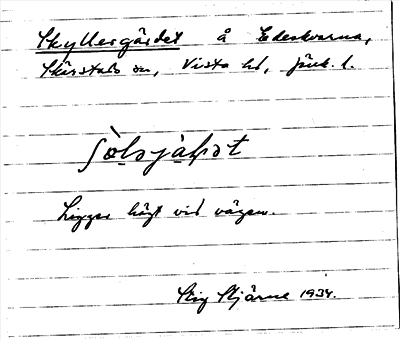 Skyllergärdet å Edeskvarna,
Skärstads sn, Vista hd, Jönk. l.
Ligger högt vid vägen.
Stig Stjärne 1934.